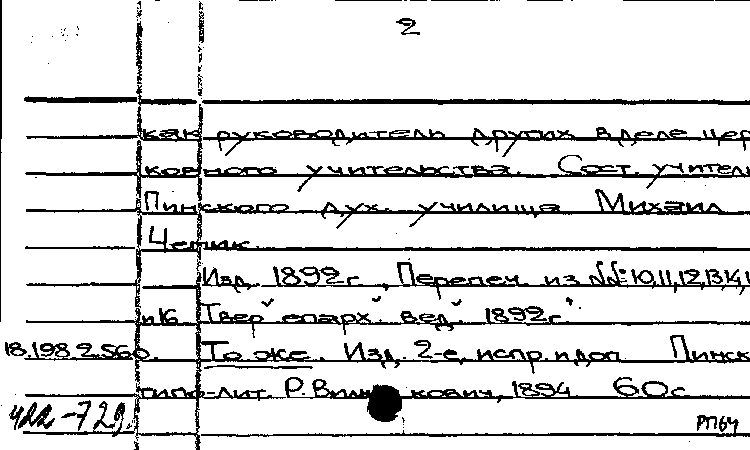 2
как руководитель других в деле цер
ковного учительства. Сост. учитель
Пинского дух. училища Михаил
Чепик.
Изд. 1892г., Перепеч. из №№: 10,11,12,13,14,1
и 16 "Твер. епарх. вед." 1892г.
18.198.2.560. То же. Изд. 2-е, испр. и доп. Пинск
типо-лит. Р. Вил кович, 1894. 60с.
422-729.
РП64